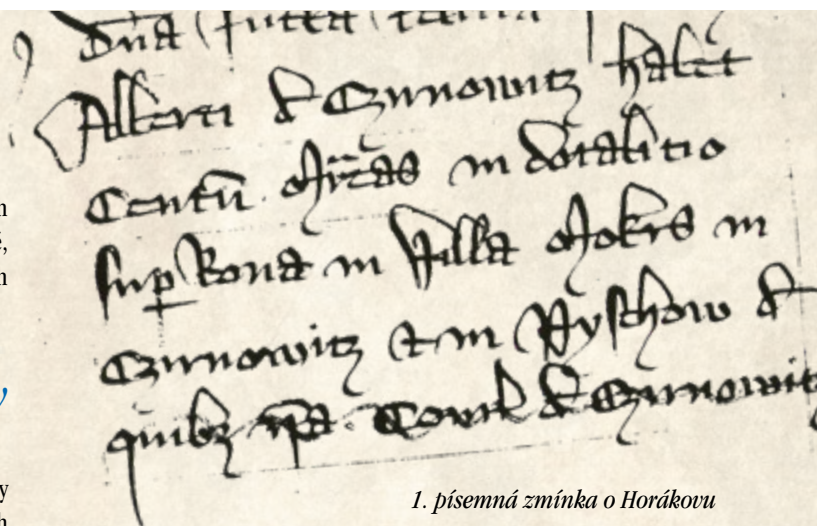 Alberti de Czurnowitz habet
Centū Mrcas in dotalitio
sup bona in Villa Mokrs in
Czurnowitz et in Ryschow de
quibz de Czurnowitz
1. písemná zmínka o Horákovu